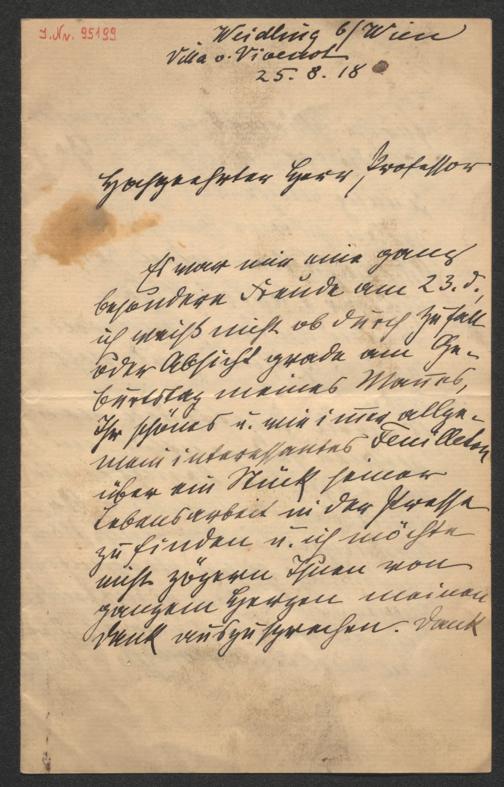 J. Nr. 95199
Weidling b/Wien
Villa v. Vivenot
25. 8. 18
Hochgeehrter Herr Professor
Es war mir eine ganz
besondere Freude am 23. d.,
ich weiß nicht ob durch Zufall
oder Absicht grade am Ge-
burtstag meines Mannes,
Ihr schönes u. wie immer allge-
mein interessantes Feuilleton
über ein Stück seiner
Lebensarbeit in der Presse
zu finden u. ich möchte
nicht zögern Ihnen von
ganzem Herzen meinen
Dank auszusprechen. Dank